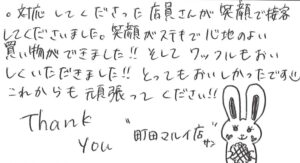 ○対応してくださった店員さんが笑顔で接客
してくださいました。笑顔がステキで心地のよい
買い物ができました!! そしてワッフルもおい
しくいただきました!! とってもおいしかったです
これからも頑張ってください!!
Thank
You
"町田マルイ店"
サン